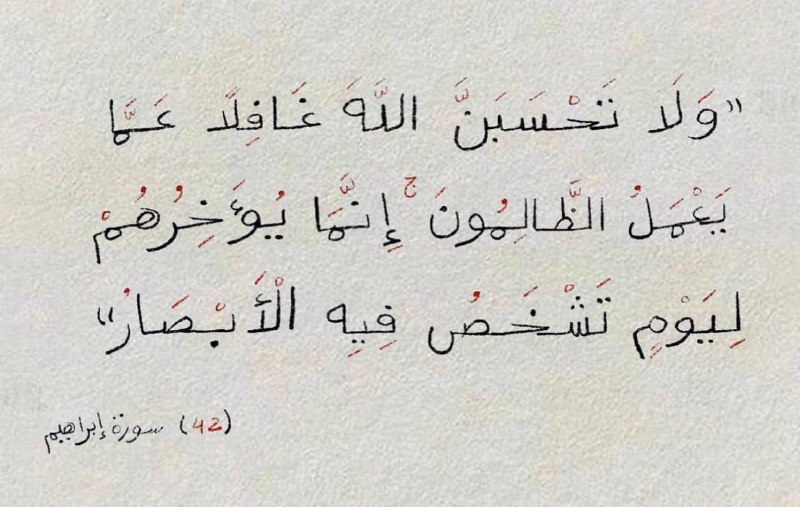 "وَلَا تَحْسَبَنَّ اللَّهَ غَافِلًا عَمَّا
يَعْمَلُ الظَّالِمُونَ ۚ إِنَّمَا يُؤَخِرُهُمْ
لِيَوْمٍ تَشْخَصُ فِيهِ الْأَبْصَارُ"
(42) سورة إبراهيم